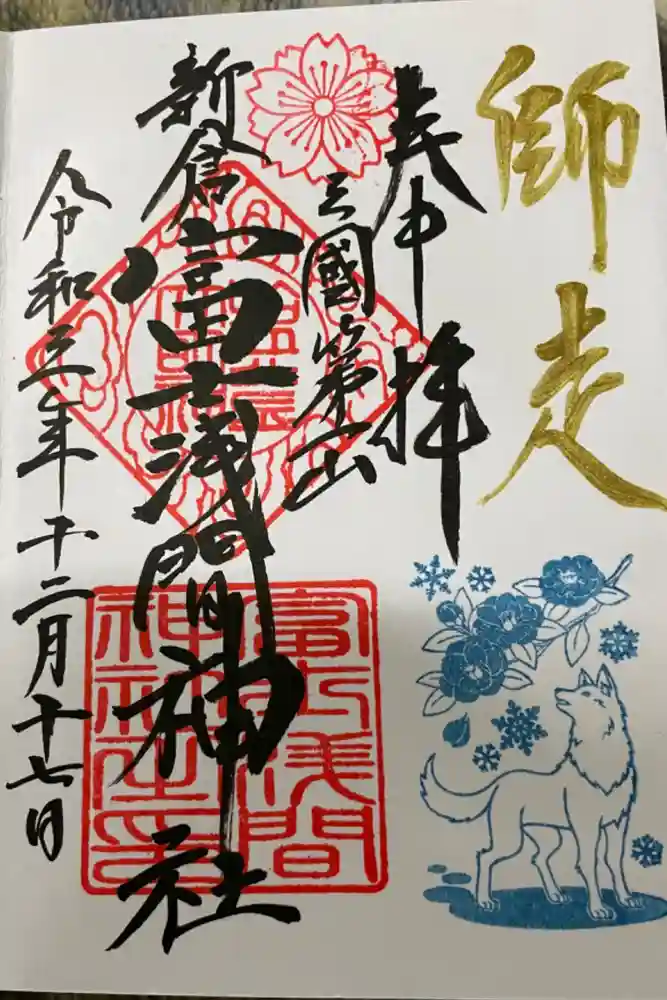 師走
奉拝
三國第一山
新倉富士浅間神社
令和三年十二月十七日
富士浅間
神社之印